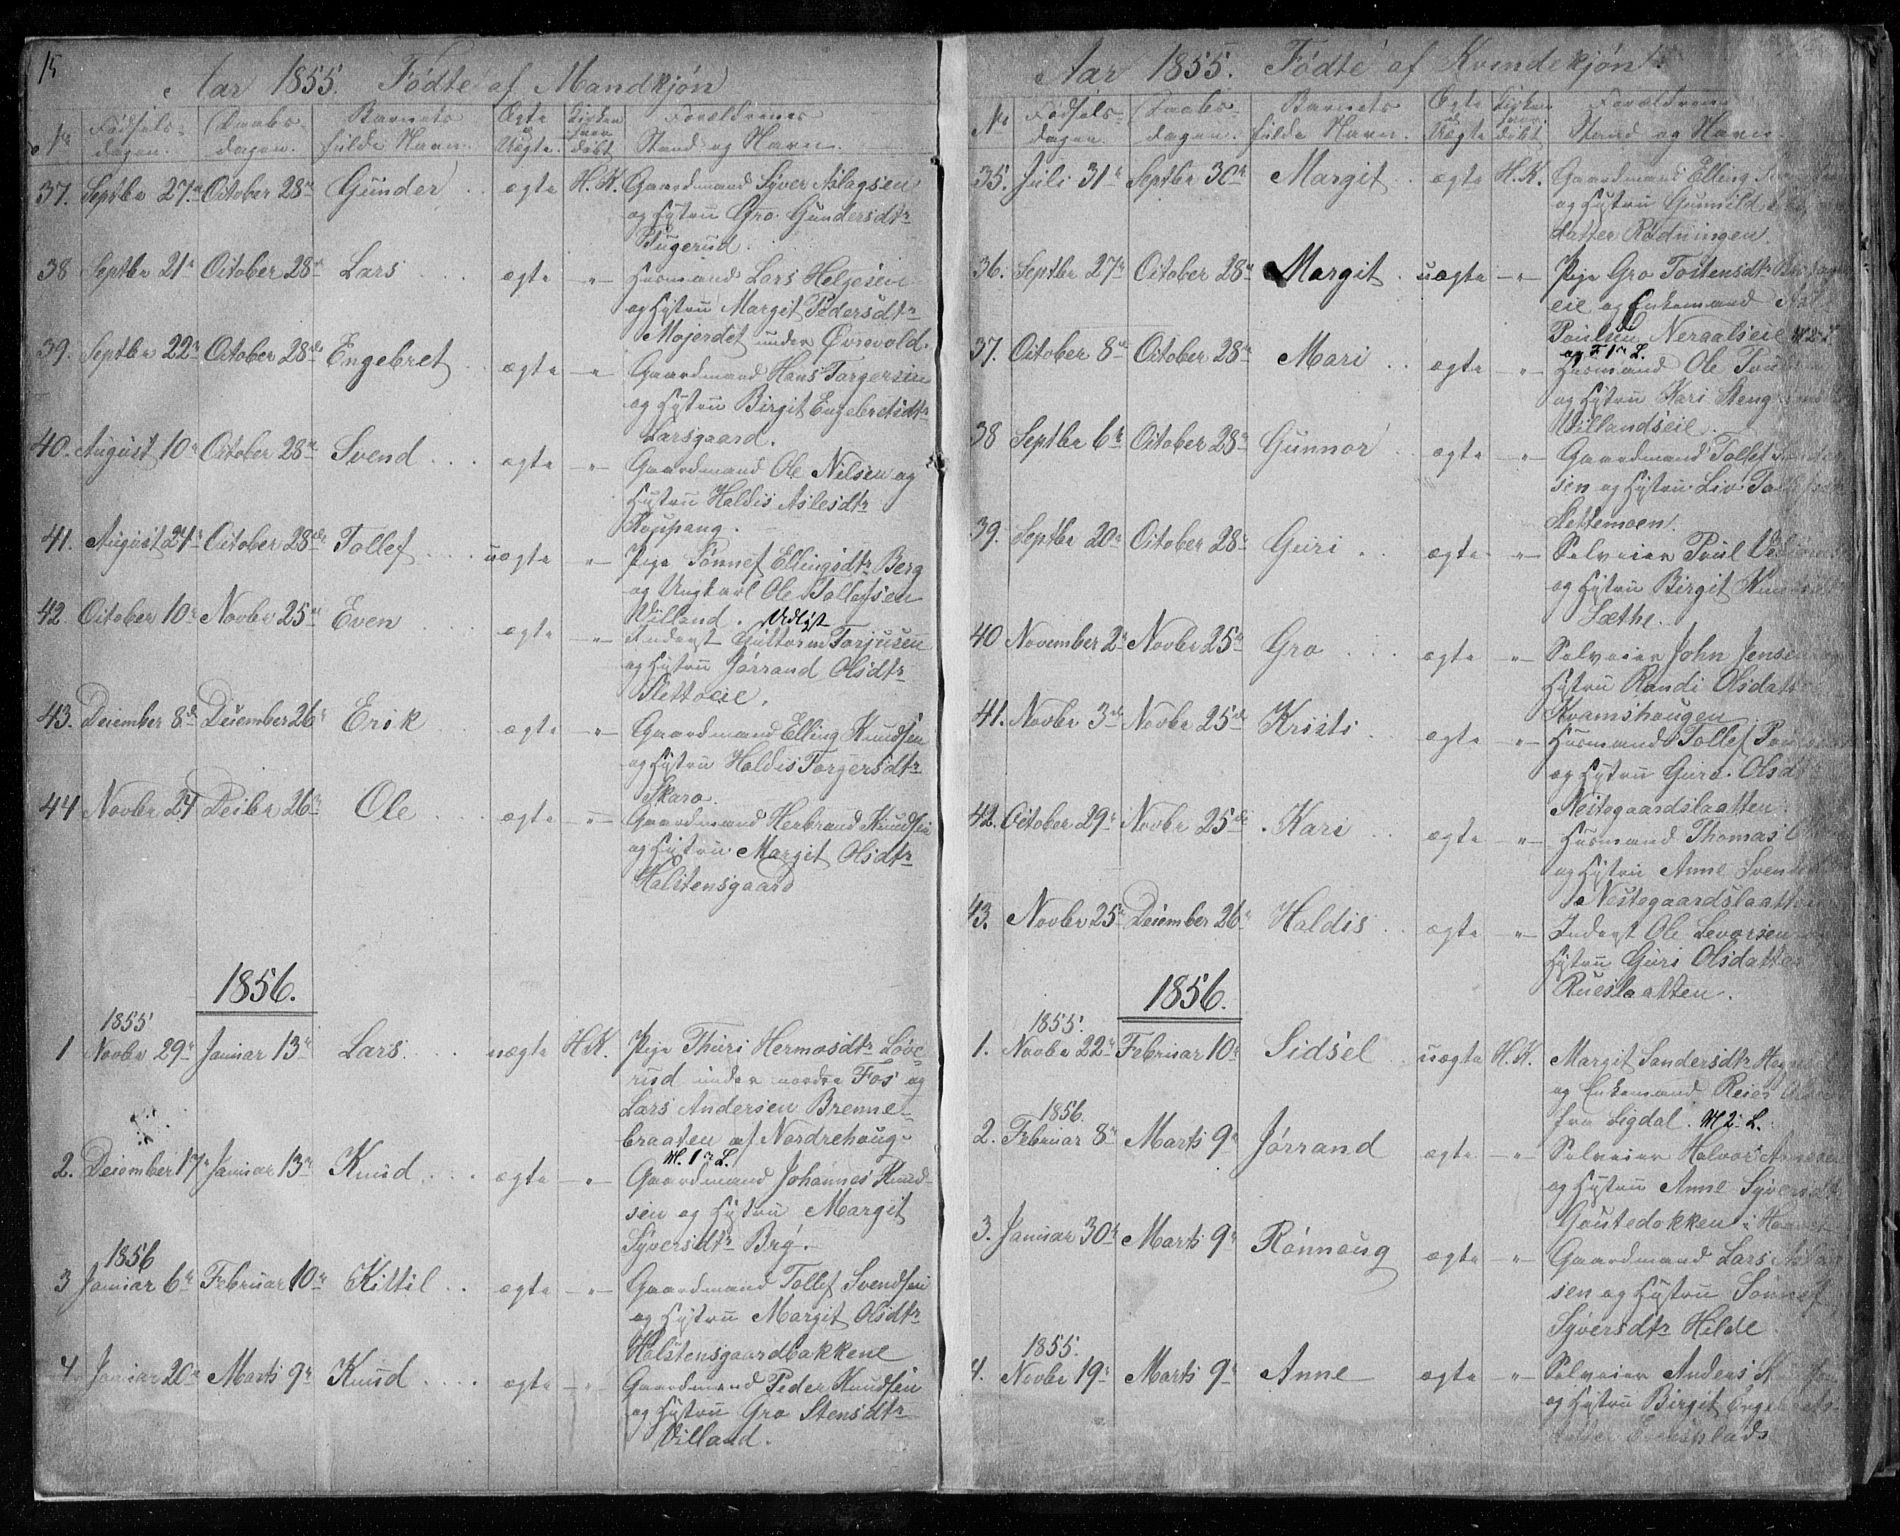 15
Aar 1855. Fødte af Mandkjøn
No Fødsels-dagen. Daabs-dagen. Barnets fulde Navn. Ægte Uægte. Kirken hvor døbt Forældrenes Stand og Navn.
37. Septbr 27de October 28de Gunder ægte H. K. Gaardmand Syver Aslagsen
og Hustru Gro Gundersdtr
Stugerud.
38 Septbr 21de October 28de Lars ægte -"- Husmand Lars Helgesen
og Hustru Margit Pedersdtr
Mojordet under Øvrevold.
39. Septbr 22de October 28de Engebret ægte -"- Gaardmand Hans Torgersen
og Hustru Birgit Engebretsdtr
Larsgaard.
40. August 10de October 28de Svend ægte -"- Gaardmand Ole Nilsen og
Hustru Haldis Aslesdtr
Kouppang.
41. August 24de October 28de Tollef uægte -"- Pige Sønnef Ellingsdtr Berg
og Ungkarl Ole Tollefsen
Villand.
42 October 10de Novbr 25de Even ægte -"- Inderst Guttorm Torjusen
og Hustru Jørrand Olsdtr
Sletteeie.
43. December 8de December 26de Erik ægte -"- Gaardmand Elling Knudsen
og Hustru Haldis Torgersdtr
Skaro.
44 Novbr 24 Decbr 26de Ole ægte -"- Gaardmand Herbrand Knudsen
og Hustru Margit Olsdtr
Halstensgaard
1856.
1855
1 Novbr 29de Januar 13de Lars uægte H. K. Pige Thuri Hermosdtr Løve-
rud under nordre Fos og
Lars Andersen Brenne-
braaten af Nordrehoug.
M. 1ste L.
2. December 17de Januar 13de Knud ægte -"- Gaardmand Johannes Knud-
sen og Hustru Margit
Syversdtr Brg.
1856
3 Januar 6te Februar 10de Kittil ægte -"- Gaardmand Tollef Svendsen
og Hustru Margit Olsdtr
Halstensgaardbakkene
4 Januar 20de Marts 9de Knud ægte -"- Gaardmand Peder Knudsen
og Hustru Gro Stensdtr
Villand.
Aar 1855. Fødte af Kvindekjøn.
No Fødsels-dagen. Daabs-dagen. Barnets fulde Navn. Ægte Uægte Kirken hvor døbt Forældrenes Stand og Navn.
35. Juli 31te Septbr 30de Margit ægte H. K. Gaardmand Elling
og Hustru Gunnild
datter Rødningen.
36. Septbr 27de October 28de Margit uægte -"- Pige Gro Tostensdtr
eie og Enkemand
Poulsen Neraalseie M 2 L
og F. 1ste L.
37. October 8de October 28de Mari ægte -"- Husmand Ole
og Hustru Kari
Villandseie.
38 Septbr 6te October 28de Gunnor ægte -"- Gaardmand Tollef
sen og Hustru Liv
Slettemoen.
39. Septbr 20de October 28de Guri ægte -"- Selveier Poul
og Hustru Birgit
Sæthe.
40 November 2de Novbr 25de Gro ægte -"- Selveier John Jensen
Hustru Randi Olsdatter
Kvamshougen
41. Novbr 3de Novbr 25de Kristi ægte -"- Husmand Tollef
og Hustru Guro Olsdtr
Nestegaardslaatten
42. October 29de Novbr 25de Kari ægte -"- Husmand Thomas
og Hustru Anne
Nestegaardslaatten
43. Novbr 25de December 26de Haldis ægte -"- Inderst Ole Levorsen
Hustru Guri Olsdatter
Rueslaatten.
1856.
1855.
1. Novbr 22de Februar 10de Sidsel uægte H. K. Margit Sandersdtr
og Enkemand Reier
fra Sigdal. M 2 L.
1856.
2. Februar 8de Marts 9de Jørrand ægte -"- Selveier Halvor
og Hustru Anne Syversdtr
Goutedokken i
3. Januar 30te Marts 9de Rønnoug ægte -"- Gaardmand Lars
sen og Hustru Sønnef
Syversdtr Hilde
1855.
4. Novbr 19de Marts 9de Anne ægte -"- Selveier Anders
og Hustru Birgit
datter